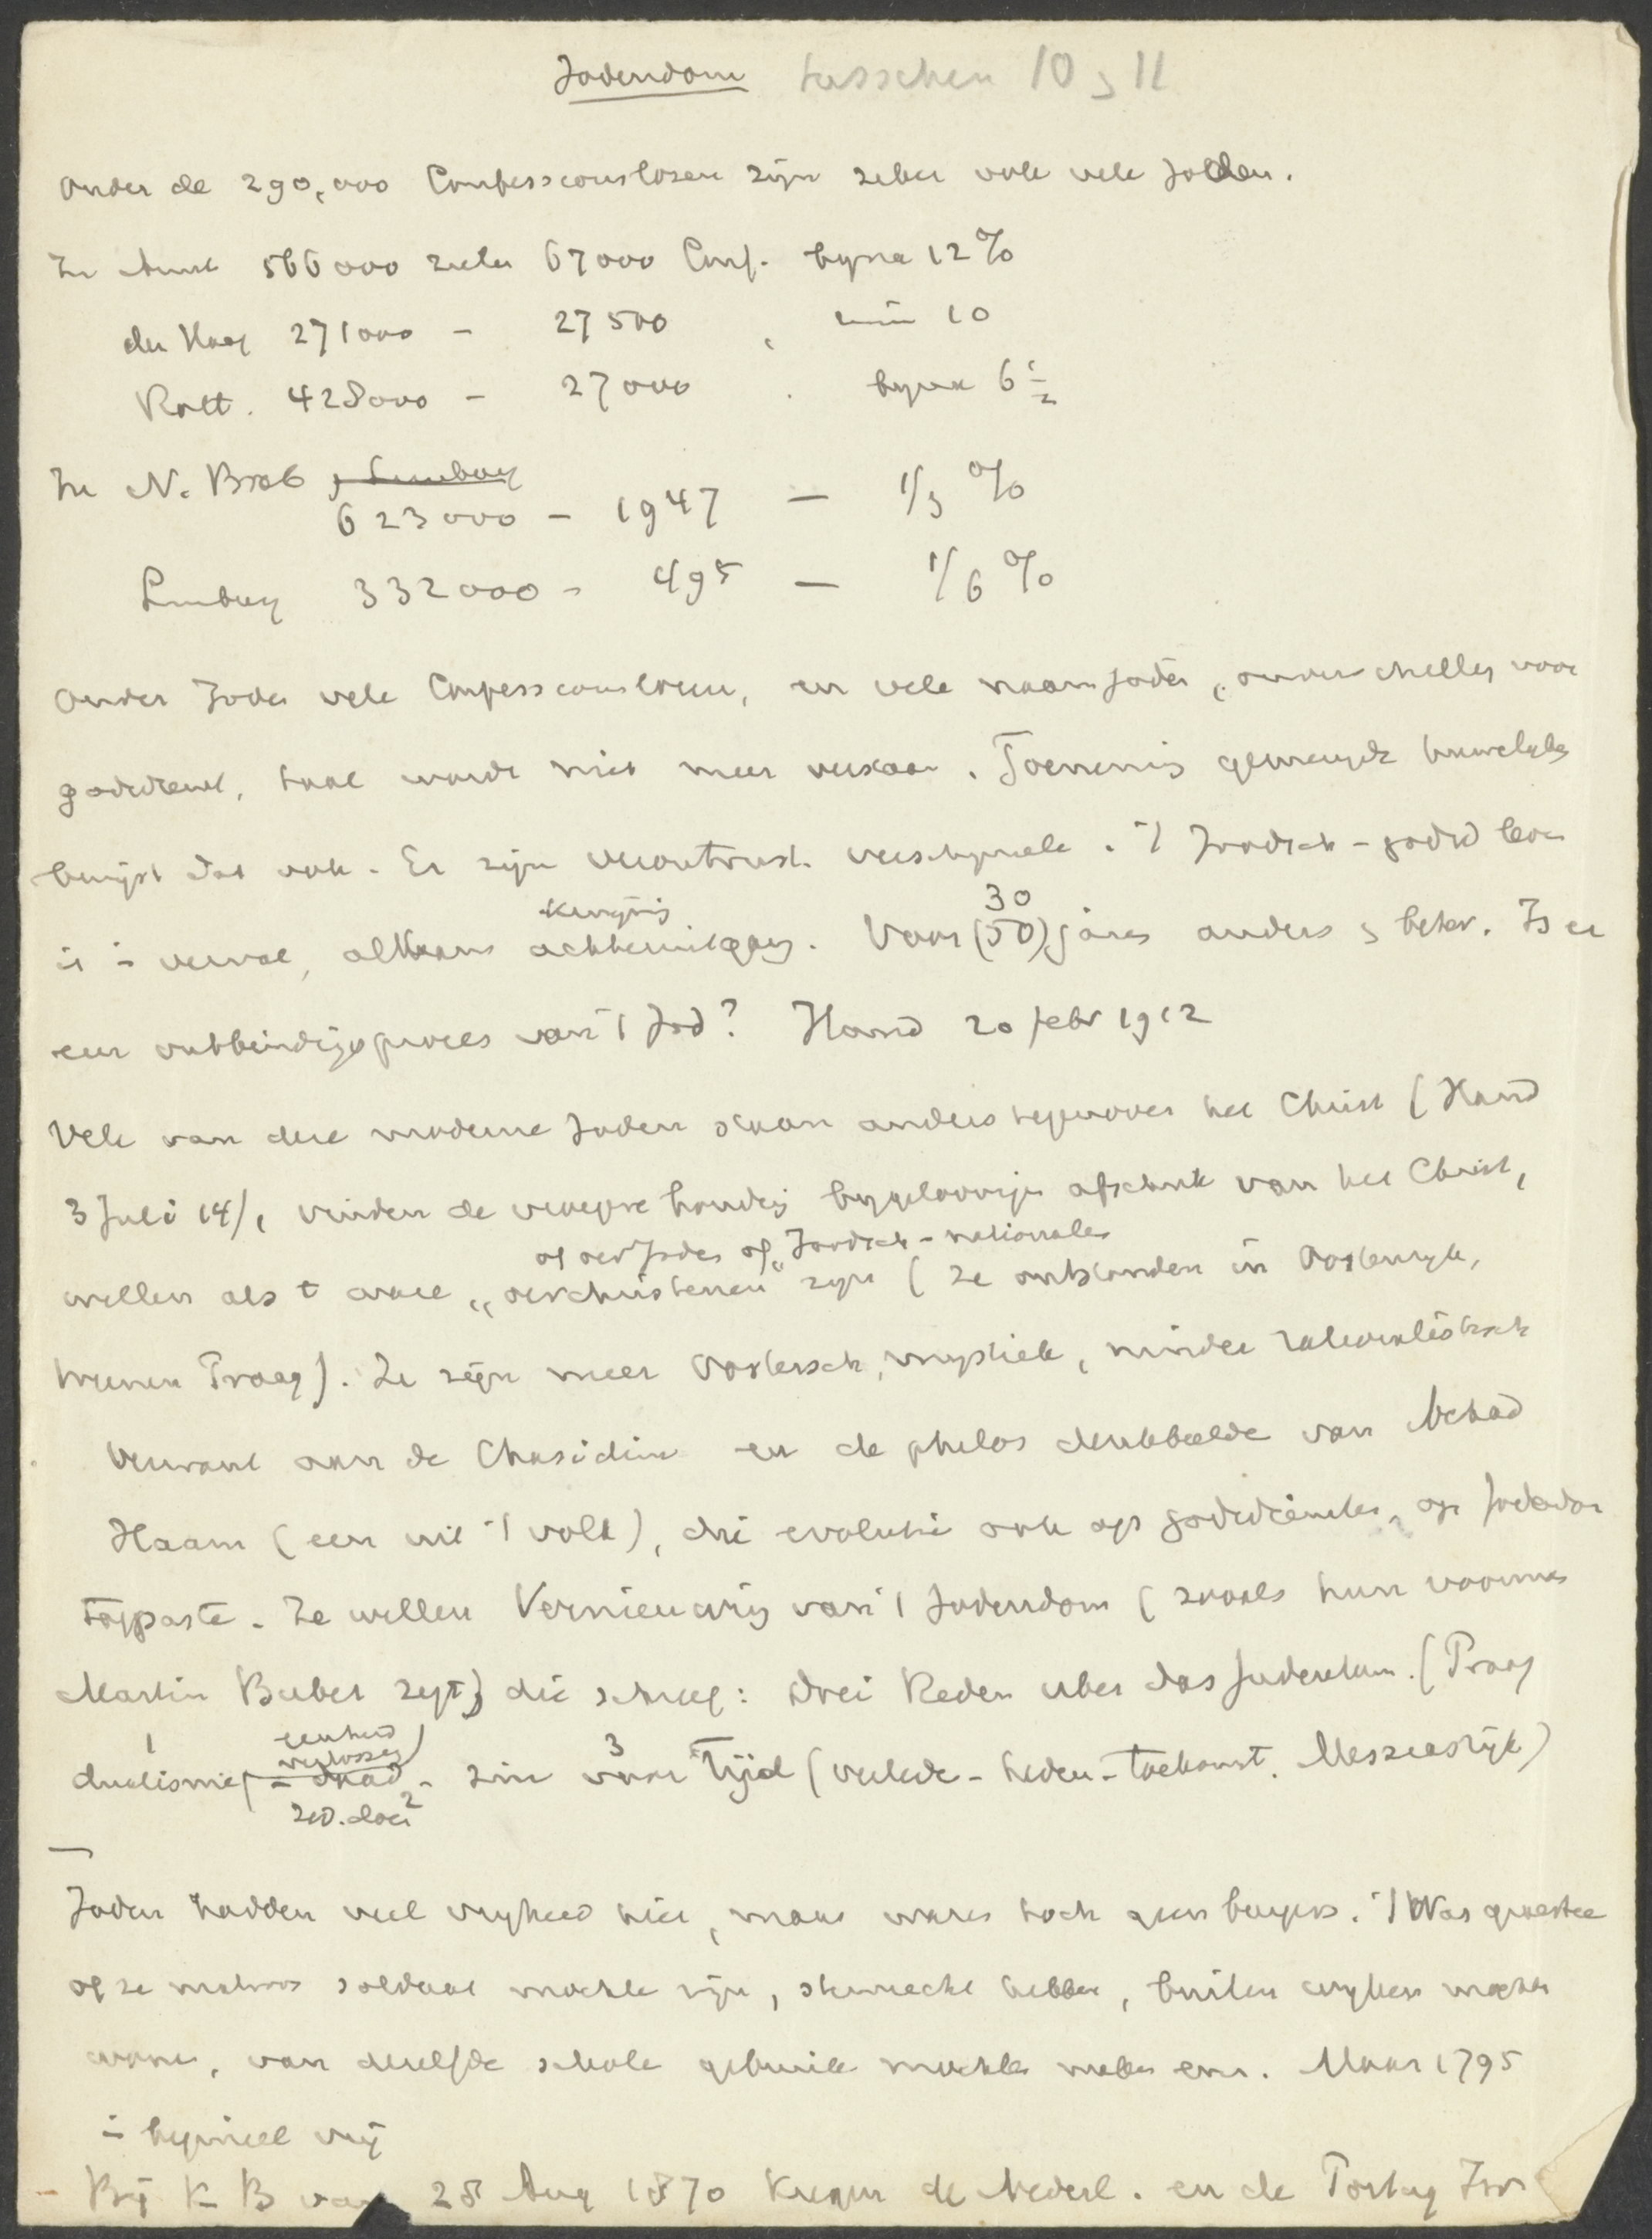 Jodendom tusschen 10 & 11
Onder de 290,000 Confessieloozen zijn zeker ook vele Joden.
In Amst 566000 zielen 67000 Conf. byna 12%
den Haag 271000 - 27500 , ruim 10
Rott. 428000 - 27000 . byna 6 1/2
In N. Brab & Limburg
623000 - 1947 — 1/3 %
Limburg 332000 - 495 — 1/6 %
Onder Joden vele Confessieloozen, en vele naamjoden, onverschillig voor
godsdienst, taal wordt niet meer verstaan. Toeneming gemengde huwelyken
bewijst dat ook. Er zijn verontrust. verschynselen. 't Joodsch-godsd leven
is in verval, althans achteruitgang. Voor (50) jaren anders & beter. Is er
30
een ontbindingsproces van 't Jod? Hand 20 febr 1912
Vele van deze moderne Joden staan anders tegenover het Christ (Hand
3 Juli 14), vinden de vroegere houding bygeloovige afschrik van het Christ,
of oer Joden of "Joodsch-nationalen
willen als t ware "oerchristenen" zijn (ze ontstonden in Oostenryk,
Weenen Praag). Ze zijn meer Oostersch, mystiek, minder rationalistisch
Verwant aan de Chasidim en de philos denkbeelden van Achad
Haam (een uit 't volk), die evolutie ook op godsdienst, op Jodendom
toepaste. Ze willen Vernieuwing van 't Jodendom (zooals hun voorman
Martin Buber zegt) die schreef: Drei Reden uber das Judentum. (Praag
1 eenheid verlossing
dualisme - daad - zin voor Tijd (verleden - heden - toekomst. Messiasrijk)
3
2
Joden hadden veel vryheid hier, maar waren toch geen burgers. 't Was quaestie
of ze matroos soldaat mochten zijn, stemrecht hebben, buiten wyken mochten
wonen, van dezelfde scholen gebruik mochten maken enz. Maar 1795
in beginsel vrij
- Bij K B van 25 Aug 1870 kregen de Nederl. en de Portug Isr